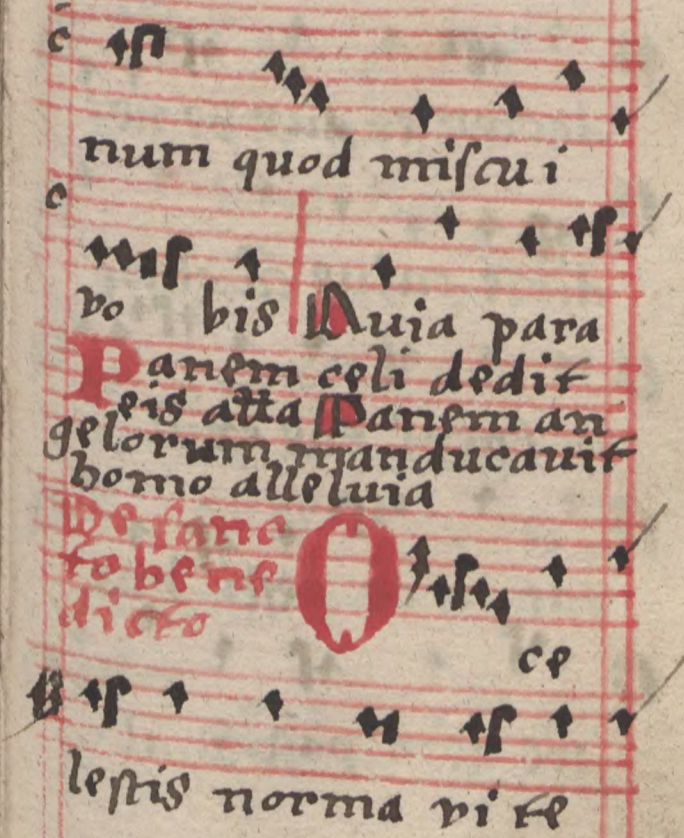 num quod miscui
vobis Quia para
Panem celi dedit
eis alla Panem an
gelorum manducavit
homo alleluia
De sanc
to bene
dicto
O ce
lestis norma vite